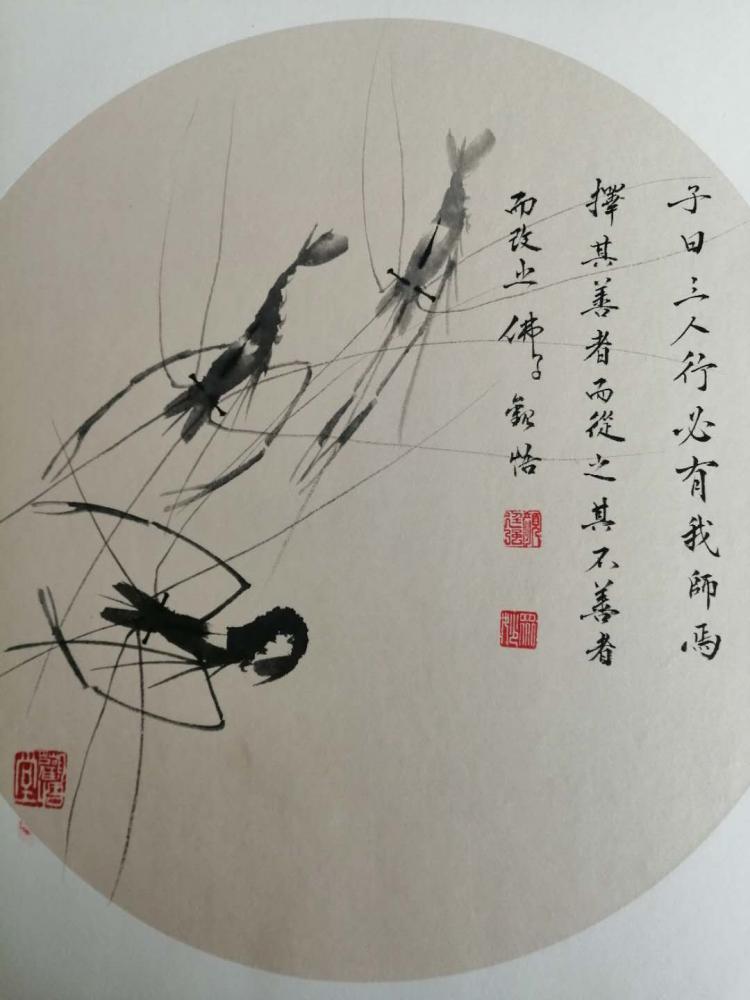 子曰三人行必有我師焉
擇其善者而從之其不善者
而改之佛子觀悟